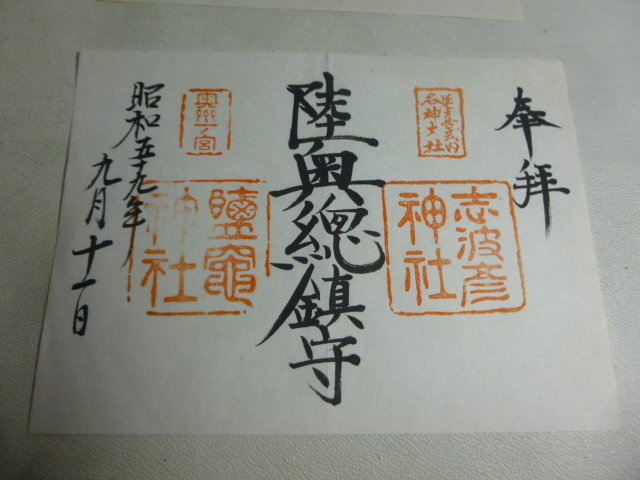 奉拝
名神大社
志波彦
神社
陸奥總鎮守
奥州一宮
鹽竈
神社
昭和五十九年
九月十一日